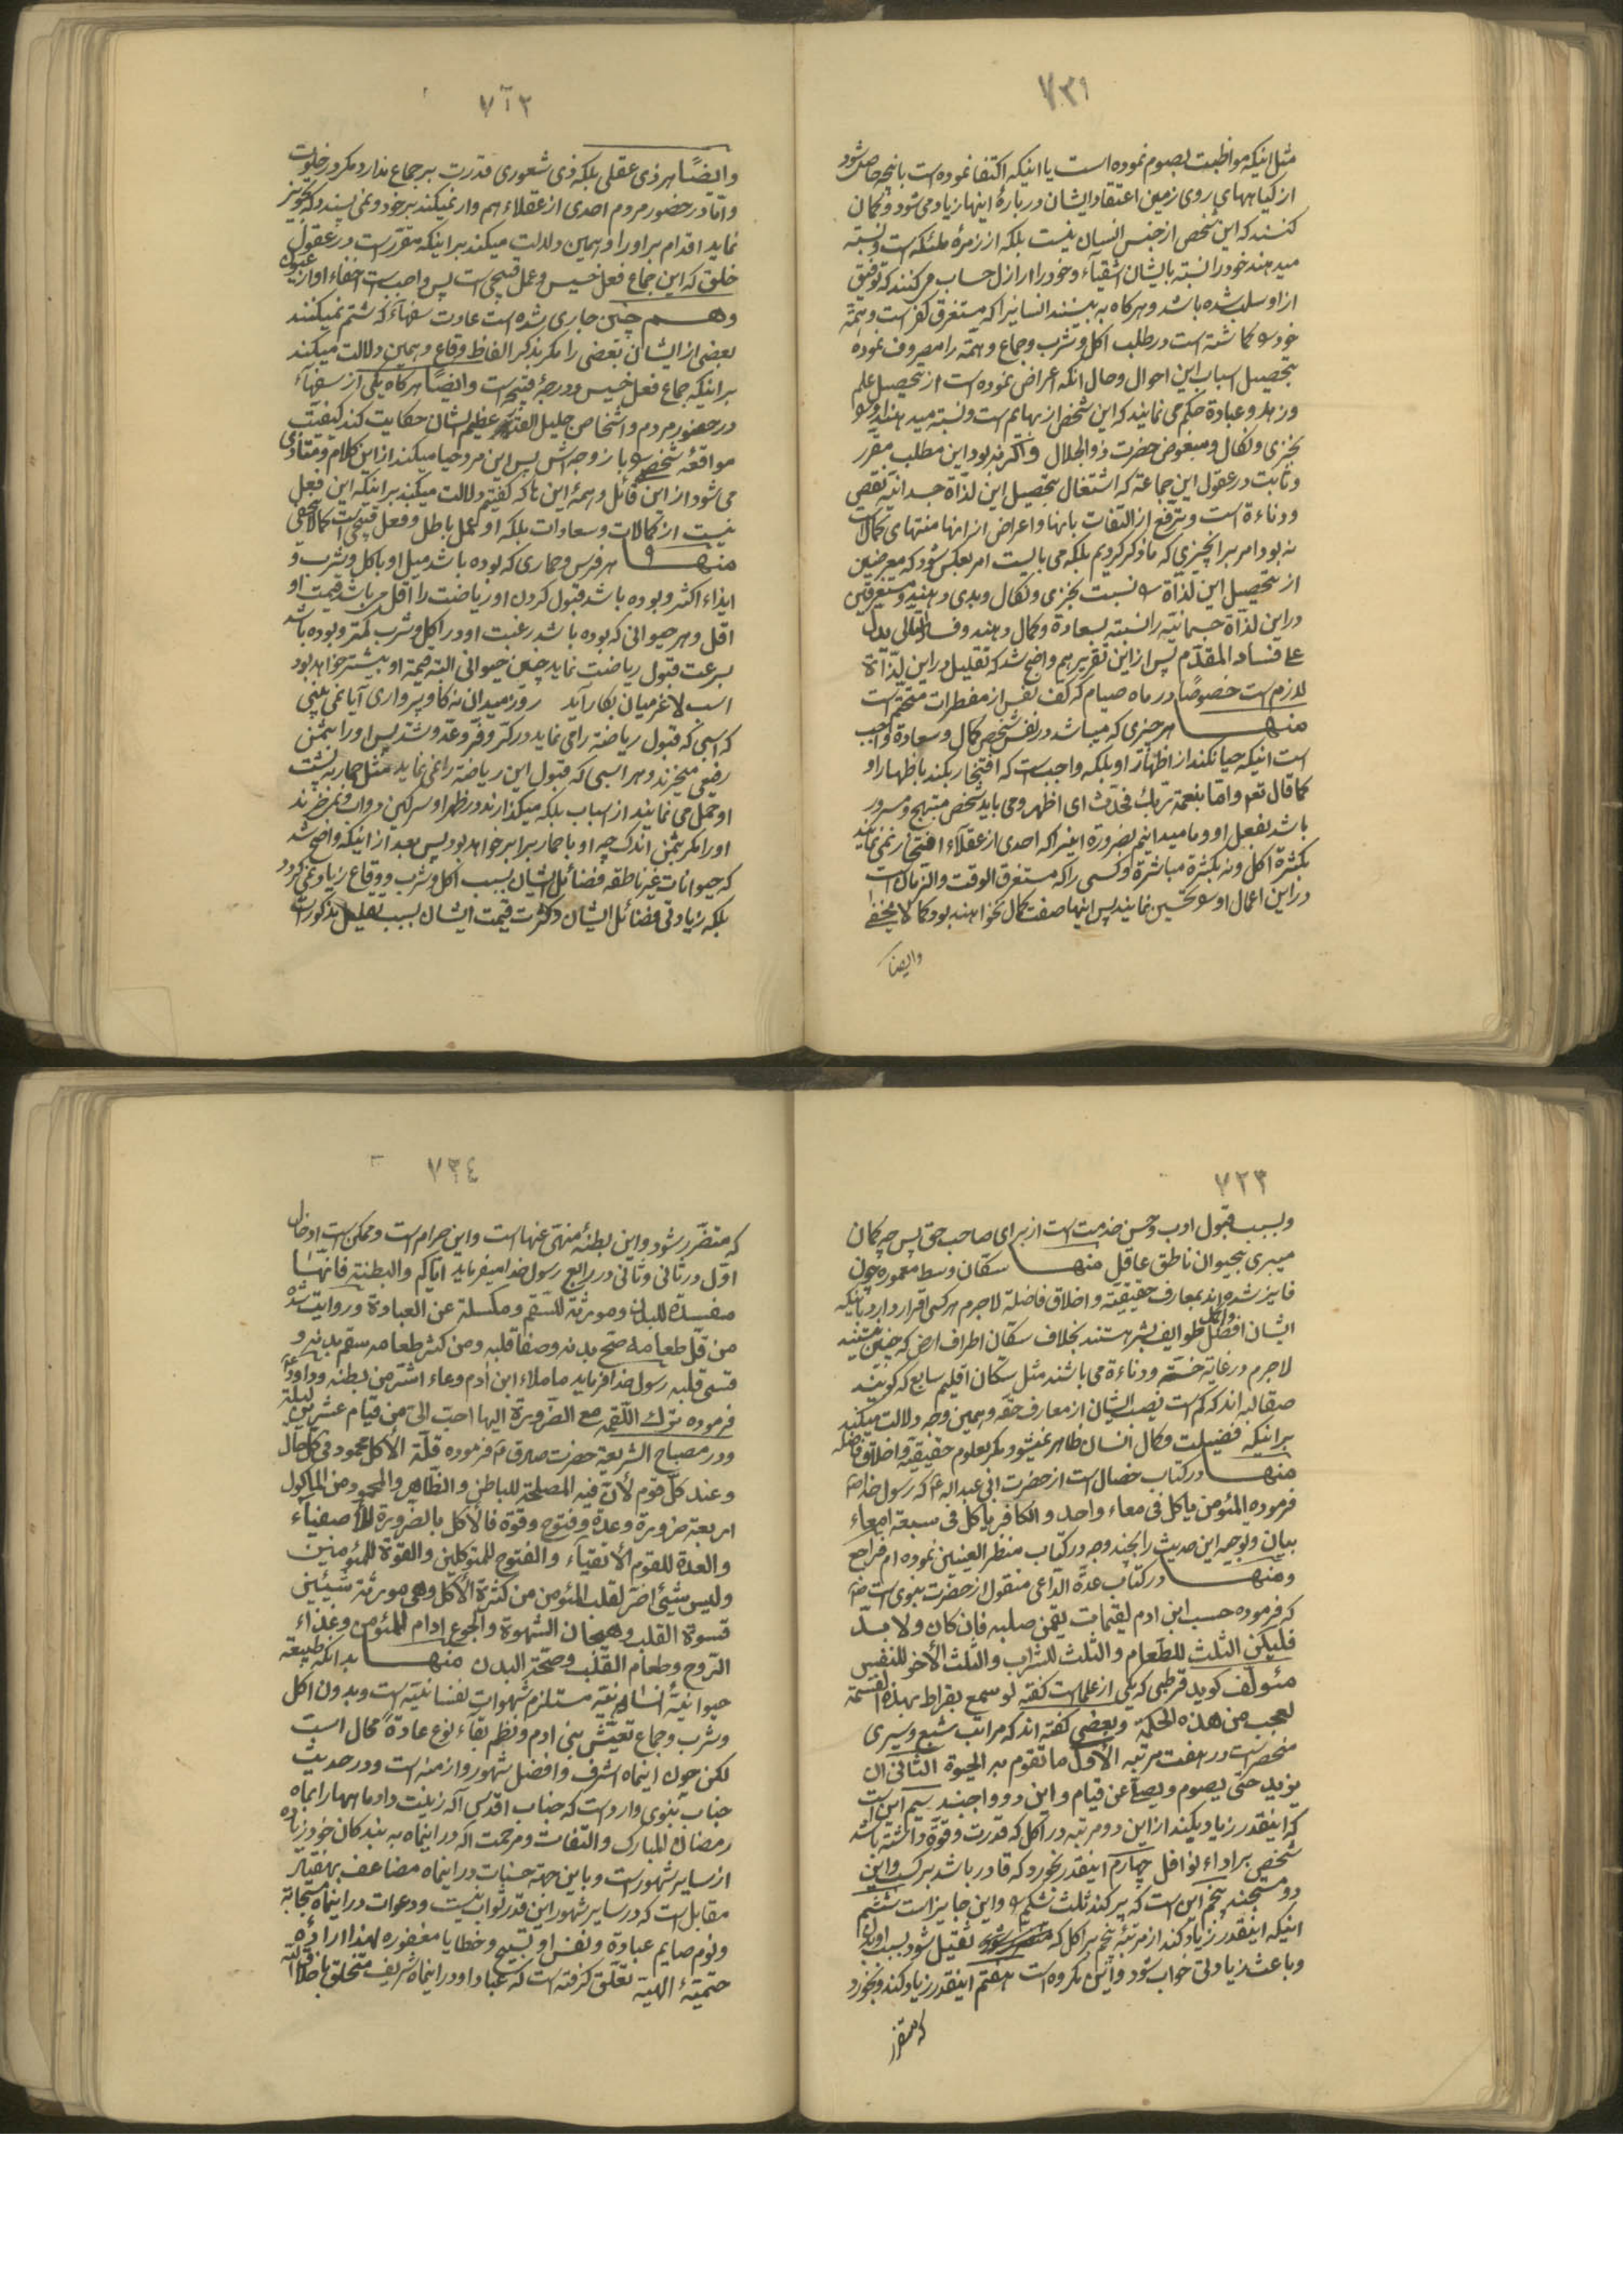 ٧٣١
مثل اینکه مواظبت بصوم نموده است یا اینکه اکتفا نموده است بانچه حاصل شود
از کیاههای روی زمین اعتقاد ایشان دربارهٔ اینها زیاد می شود و کمان
کنند که این شخص از جنس انسیان نیست بلکه از زمرهٔ ملئکه است و نسبته
میدهند خود را نسبته بایشان اشقیاء و خود را از ارازل حساب می کنند که توفیق
از او سلب شده باشد و هرکاه به بینند انسانیرا که مستغرق کفر است و همّه
خود را کماشته است در طلب اکل و شرب و جماع و همّة را مصروف نموده
بتحصیل اسباب این احوال و حال انکه اعراض نموده است از تحصیل علم
و زهد و عبادة حکم می نمایند که این شخص از بهایم است و نسبته میدهند او را
بخزی و نکال و مبغوض حضرت ذو الجلال و اکر نه بود این مطلب مقرر
و ثابت در عقول این جماعة که اشتغال بتحصیل این لذّاة جسدانیّه نقص
و دناءة است و ترفّع از التفات بانها و اعراض از انها منتهای کمال است
نه بود امر بر انچیزی که ما ذکر کردیم بلکه می بایست امر بعکس شود که معرضین
از تحصیل این لذّاة را نسبت بخزی و نکال و بدی دهند و مستغرقین
در این لذّاة جسمانیّه را نسبته بسعادة و کمال دهند و فساد التالی یدلّ
علی فساد المقدّم پس از این تقریر هم واضح شد که تقلیل در این لذّاة
لازم است خصوصًا در ماه صیام که کف نفس از مفطرات متحتّم است
منها هر چیزی که میباشد در نفس شخص کمال و سعادة واجب
است اینکه حیا نکند از اظهار او بلکه واجب است که افتخار بکند باظهار او
کما قال تع و امّا بنعمة ربّك فحدّث ای اظهر و می باید شخص مبتهج و مسرور
باشد بفعل او و ما میدانیم بضرورة اینرا که احدی از عقلاء افتخار نمی نمایند
بکثرة اکل و نه بکثرة مباشرة و کسی را که مستغرق الوقت و الزمان است
در این اعمال او را تحسین نمایند پس اینها صفت کمال نخواهند بود کما لا یخفی
وایضا
٧٣٢
و ایضًا هر ذی عقلی بلکه ذی شعوری قدرت بر جماع ندارد مکر در خلوت
و امّا در حضور مردم احدی از عقلاء هم وار نمیکند بر خود و نمی پسندد که تجویز
نماید اقدام بر او را و همین دلالت میکند بر اینکه مقرّر است در عقول
خلق که این جماع فعل خسیس و عمل قبیحی است پس واجب است اخفاء او از عیون
و هم چنین جاری شده است عادت سفهاء که شتم نمیکنند
بعضی از ایشان بعضی را مکر بذکر الفاظ وقاع و همین دلالت میکند
بر اینکه جماع فعل خسیس و درجهٔ قبیحه است و ایضًا هرکاه یکی از سفهاء
در حضور مردم و اشخاص جلیل القدر عظیم الشان حکایت کند کیفیت
مواقعهٔ شخص را با زوجه اش پس این مرد حیا میکند از این کلام و متأذّی
می شود از این قائل و همهٔ این ها که کفتیم دلالت میکند بر اینکه این فعل
نیست از کمالات و سعادات بلکه او عمل باطل و فعل قبیحی است کما لا یخفی
منها هر فرس و حماری که بوده باشد میل او باکل و شرب و
ایذاء اکثر و بوده باشد قبول کردن او ریاضت را اقل می باشد قیمت او
اقل و هر حیوانی که بوده باشد رغبت او در اکل و شرب کمتر و بوده باشد
بسرعت قبول ریاضت نماید چنین حیوانی البته قیمة او بیشتر خواهد بود
اسب لاغر میان بکار آید روز میدان نه کاو پرواری آیا نمی بینی
که اسبی که قبول ریاضة را می نماید در کرّ و فرّ و عدو شدید پس او را بثمن
رفیعی میخرند و هر اسبی که قبول این ریاضة را نمی نماید مثل حمار به پشت
او حمل می نمایند از اسباب بلکه میکذارند در ظهر او سرکین دواب و نمی خرند
او را مکر بثمن اندک چه او با حمار برابر خواهد بود پس بعد از اینکه واضح شد
که حیوانات غیر ناطقه فضائل ایشان بسبب اکل و شرب و وقاع زیاد نمی کردد
بلکه زیادتی فضائل ایشان و کثرت قیمت ایشان بسبب تقلیل مذکورات
٧٣٣
و بسبب قبول ادب و حسن خدمت است از برای صاحب حق پس چه کمان
میبری بحیوان ناطق عاقل منها سکّان وسط معموره چون
فایز شده اند بمعارف حقیقیّه و اخلاق فاضلة لا جرم هر کسی اقرار دارد باینکه
ایشان افضل و اکمل طوایف بشر هستند بخلاف سکّان اطراف ارض که چنین نیستند
لا جرم در غایة خسّة و دناءة می باشند مثل سکّان اقلیم سابع که کویند
صقالبه اند که کم است نصیب ایشان از معارف حقّه و همین وجه دلالت میکند
بر اینکه فضیلت و کمال انسان ظاهر نمیشود مکر بعلوم حقیقیّه و اخلاق فاضله
منها در کتاب خصال است از حضرت ابی عبد اله ع که رسول خدا ص
فرموده المئومن یاکل فی معاء واحد و الکافر یاکل فی سبعة امعاء
بیان و توجیه این حدیث را بچند وجه در کتاب منظر العینین نموده ام فراجع
و منها در کتاب عدّة الدّاعی منقول از حضرت نبوی است ص
که فرموده حسب ابن ادم لقیمات یقمن صلبه فان کان و لا بدّ
فلیکن الثلث للطّعام و الثلث للشراب و الثّلث الأخر للنفس
مئولف کوید قرطبی که یکی از علما است کفته لو سمع بقراط بهذه القسمة
لعجب من هذه الحکمة و بعضی کفته اند که مراتب شبع و سیری
منحصر است در هفت مرتبه الأوّل ما تقوم به الحیوة الثّانی ان
یزید حتّی یصوم و یصلّی عن قیام و این دو واجبند سیم این است
که اینقدر زیاد بکند از این دو مرتبه در اکل که قدرت و قوّة داشته باشد
شخص بر اداء نوافل چهارم اینقدر بخورد که قادر باشد بر کسب و این
دو مستحبند پنجم این است که پر کند ثلث شکم را و این جایز است ششم
اینکه اینقدر زیاد کند از مرتبهٔ پنجم بر اکل که ثقیل شود بسبب او بدن
و باعث زیادتی خواب شود و این مکروه است هفتم اینقدر زیاد کند و بخورد
که متضرّر
٧٣٤
که متضرّر شود و این بطنهٔ منهی عنها است و این حرام است و ممکن است ادخال
اوّل در ثانی و ثانی در رابع رسول خدا میفرماید ایّاکم و البطنة فانّها
مفسدة للبدن و مورثة للسّقم و مکسلة عن العبادة و روایت شده
من قلّ طعامه صحّ بدنه و صفا قلبه و من کثر طعامه سقم بدنه و
قسی قلبه رسول خدا فرماید ما ملاء ابن ادم وعاء اشرّ من بطنه و داود ع
فرموده ترك اللّقمة مع الضّرورة الیها احبّ الیّ من قیام عشرین لیلة
و در مصباح الشریعة حضرت صادق ع فرموده قلّة الأکل محمود فی کل حال
و عند کلّ قوم لأنّ فیه المصلحة للباطن و الظّاهر و المحمود من المأکول
اربعة ضرورة و عدّة و فتوح و قوّة فالأکل بالضّرورة للأصفیاء
و العدة للقوم الأتقیاء و الفتوح للمتوکلین و القوّة للمئومنین
و لیس شیئی اضرّ لقلب المئومن من کثرة الأکل و هی مورثة شیئین
قسوة القلب و هیجان الشهوة و الجوع ادام للمئومن و غذاء
الرّوح و طعام القلب و صحّة البدن منها بدانکه طبیعة
حیوانیّة انسانیّة مستلزم شهوات نفسانیّه است و بدون اکل
و شرب و جماع تعیّش بنی ادم و نظم بقاء نوع عادة محال است
لکن چون اینماه اشرف و افضل شهور و ازمنه است و در حدیث
جناب نبوی وارد است که جناب اقدس اله زینت داد ماهها را بماه
رمضان المبارك و التفات و مرحمت اله در اینماه به بندکان خود زیاده
از سایر شهور است و باین جهة حسنات در اینماه مضاعف بهفتاد
مقابل است که در سایر شهور این قدر ثواب نیست و دعوات در اینماه مستجابة
و نوم صایم عبادة و نفس او تسبیح و خطایا مغفوره لهذا ارادهٔ
حتمیّهٔ الهیّه تعلّق کرفته است که عباد او در اینماه شریف متخلّق باخلاق اله